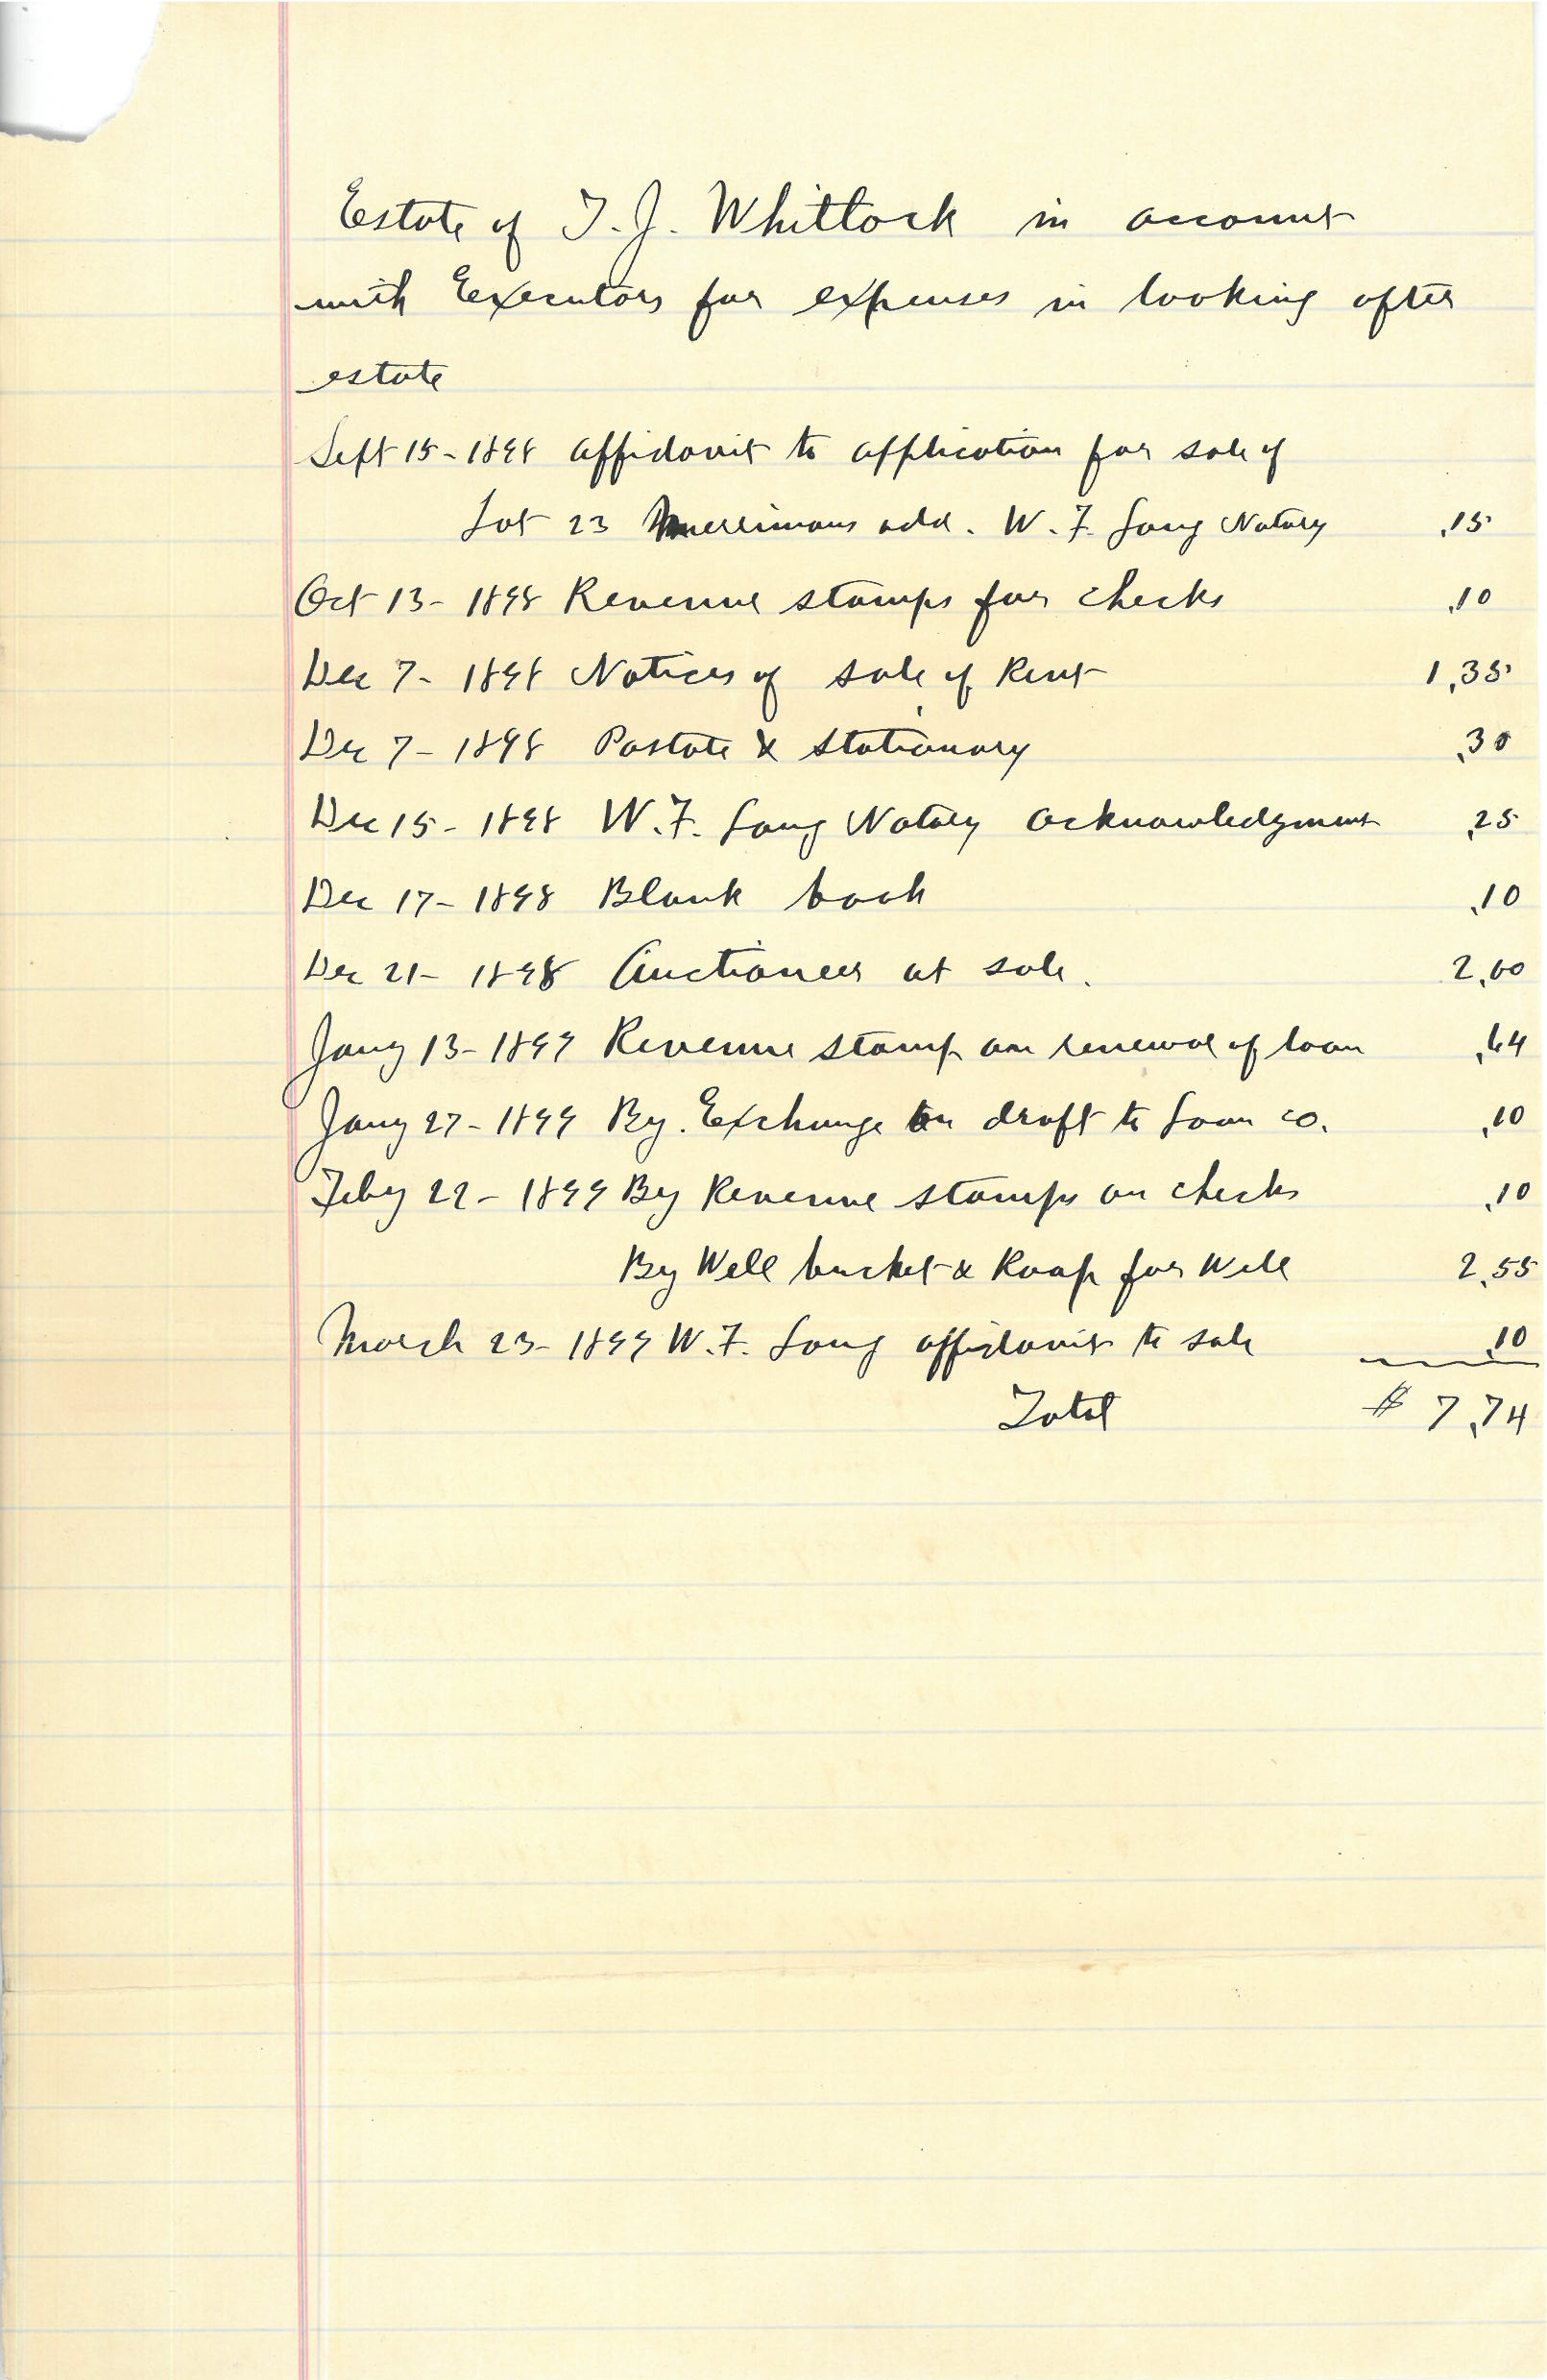 Estate of T. J. Whitlock in account
with Executors for expenses in looking after
estate
Sept 15 - 1898 affidavit to application for sale of
Lot 23 Merrimons add. W. F. Long Notary .15
Oct 13 - 1898 Revenue stamps for checks .10
Dec 7 - 1898 Notices of sale of Rent 1.35
Dec 7 - 1898 Postate & stationary .30
Dec 15 - 1898 W. F. Long Notary acknowledgment .25
Dec 17 - 1898 Blank book .10
Dec 21 - 1898 Auctioneer at sale. 2.00
Jany 13 - 1899 Revenue stamp on renewal of loan .64
Jany 27 - 1899 By. Exchange on draft to Loan co. .10
Feby 22 - 1899 By Revenue stamps on checks .10
By Well bucket & Roap for Well 2.55
March 23 - 1899 W. F. Long affidavit to sale .10
Total $ 7.74